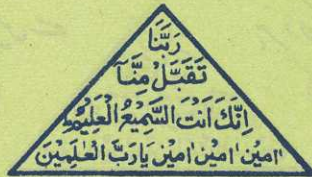 رَبَّنَا
تَقَبَّلْ مِنَّآ
اِنَّكَ اَنْتَ السَّمِيْعُ الْعَلِيْمُ ط
اٰمِيْن اٰمِيْن اٰمِيْن يَارَبَّ الْعٰلَمِيْنَ